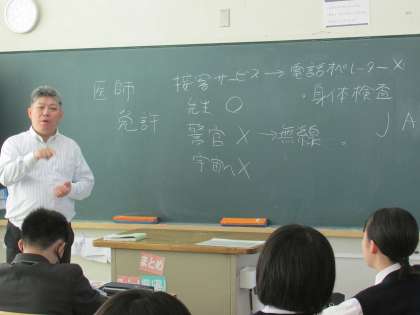 医師
免許
接客サービス→電話オペレーター×
・身体検査
先生 ○
警官 ×→無線
宇宙へ×
JA
まとめ